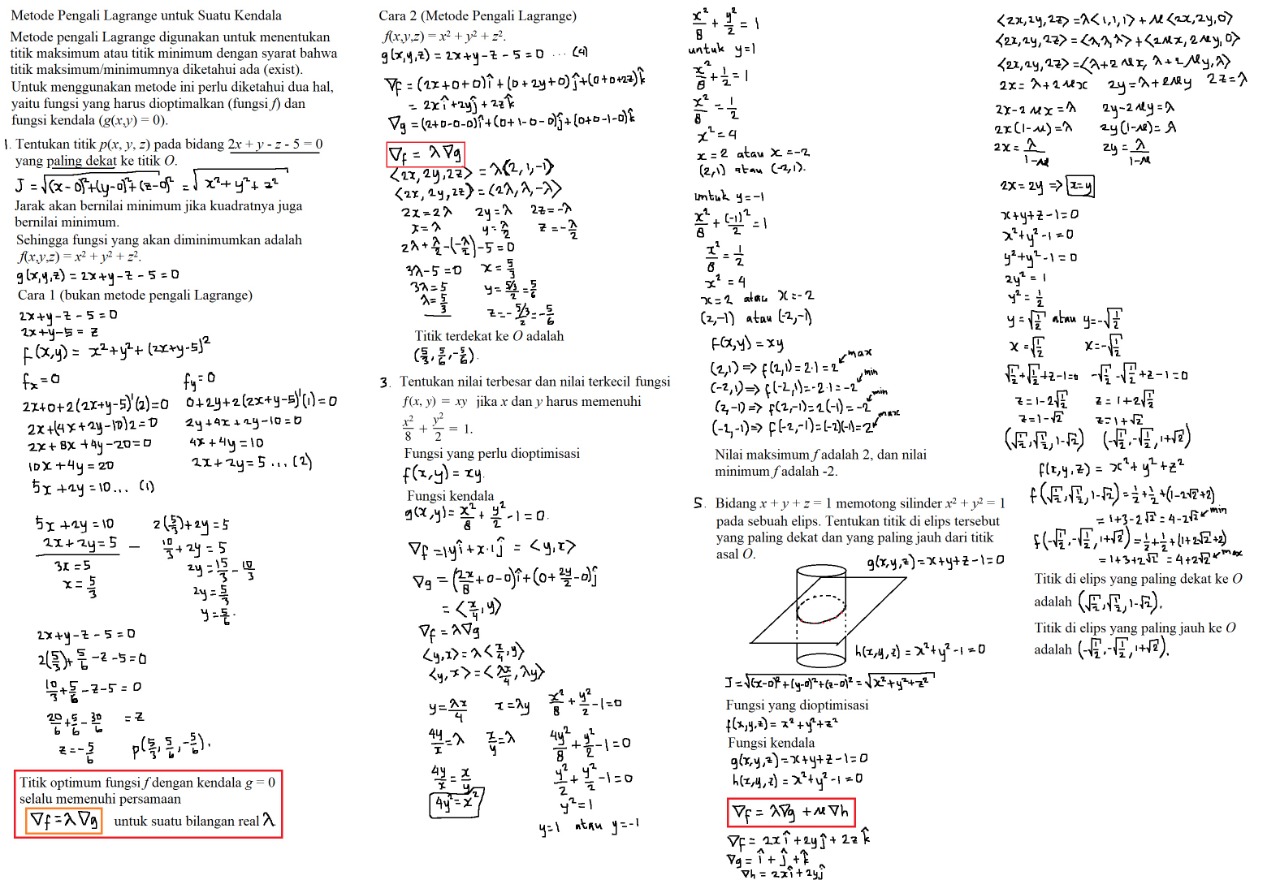 Metode Pengali Lagrange untuk Suatu Kendala
Metode pengali Lagrange digunakan untuk menentukan
titik maksimum atau titik minimum dengan syarat bahwa
titik maksimum/minimumnya diketahui ada (exist).
Untuk menggunakan metode ini perlu diketahui dua hal,
yaitu fungsi yang harus dioptimalkan (fungsi f) dan
fungsi kendala (g(x,y) = 0).
1. Tentukan titik p(x, y, z) pada bidang 2x + y - z - 5 = 0
yang paling dekat ke titik O.
J = √((x-0)²+(y-0)²+(z-0)²) = √(x²+y²+z²)
Jarak akan bernilai minimum jika kuadratnya juga
bernilai minimum.
Sehingga fungsi yang akan diminimumkan adalah
f(x,y,z) = x² + y² + z².
g(x,y,z) = 2x+y-z-5=0
Cara 1 (bukan metode pengali Lagrange)
2x+y-z-5=0
2x+y-5=z
f(x,y) = x²+y²+(2x+y-5)²
fx=0 fy=0
2x+0+2(2x+y-5)¹(2)=0 0+2y+2(2x+y-5)¹(1)=0
2x+(4x+2y-10)2=0 2y+4x+2y-10=0
2x+8x+4y-20=0 4x+4y=10
10x+4y=20 2x+2y=5 ...(2)
5x+2y=10... (1)
5x+2y=10 2(5/3)+2y=5
2x+2y=5 − 10/3+2y=5
3x=5 2y=15/3-10/3
x=5/3 2y=5/3
y=5/6.
2x+y-z-5=0
2(5/3)+5/6-z-5=0
10/3+5/6-z-5=0
20/6+5/6-30/6 =z
z=-5/6 p(5/3,5/6,-5/6).
Titik optimum fungsi f dengan kendala g = 0
selalu memenuhi persamaan
∇f=λ∇g untuk suatu bilangan real λ
Cara 2 (Metode Pengali Lagrange)
f(x,y,z) = x² + y² + z².
g(x,y,z) = 2x+y-z-5=0 ...(4)
∇f=(2x+0+0)î+(0+2y+0)ĵ+(0+0+2z)k̂
= 2xî+2yĵ+2zk̂
∇g=(2+0-0-0)î+(0+1-0-0)ĵ+(0+0-1-0)k̂
∇f = λ∇g
⟨2x, 2y, 2z⟩ = λ⟨2,1,-1⟩
⟨2x, 2y, 2z⟩=⟨2λ,λ,-λ⟩
2x=2λ 2y=λ 2z=-λ
x=λ y=λ/2 z=-λ/2
2λ+λ/2-(-λ/2)-5=0
3λ-5=0 x=5/3
3λ=5 y=(5/3)/2=5/6
λ=5/3 z=-(5/3)/2=-5/6
Titik terdekat ke O adalah
(5/3,5/6,-5/6).
3. Tentukan nilai terbesar dan nilai terkecil fungsi
f(x, y) = xy jika x dan y harus memenuhi
x²/8 + y²/2 = 1.
Fungsi yang perlu dioptimisasi
f(x,y)=xy.
Fungsi kendala
g(x,y)=x²/8+y²/2-1=0.
∇f=1yî+x·1ĵ = ⟨y,x⟩
∇g=(2x/8+0-0)î+(0+2y/2-0)ĵ
= ⟨x/4,y⟩
∇f=λ∇g
⟨y,x⟩=λ⟨x/4,y⟩
⟨y,x⟩=⟨λx/4,λy⟩
y=λx/4 x=λy x²/8+y²/2-1=0
4y/x=λ x/y=λ 4y²/8+y²/2-1=0
4y/x=x/y y²/2+y²/2-1=0
4y²=x² y²=1
y=1 atau y=-1
x²/8+y²/2=1
untuk y=1
x²/8+1/2=1
x²/8=1/2
x²=4
x=2 atau x=-2
(2,1) atau (-2,1).
untuk y=-1
x²/8+(-1)²/2=1
x²/8=1/2
x²=4
x=2 atau x=-2
(2,-1) atau (-2,-1)
f(x,y)=xy
(2,1)=> f(2,1)=2·1=2 max
(-2,1)=> f(-2,1)=-2·1=-2 min
(2,-1)=> f(2,-1)=2(-1)=-2 min
(-2,-1)=> f(-2,-1)=(-2)(-1)=2 max
Nilai maksimum f adalah 2, dan nilai
minimum f adalah -2.
5. Bidang x + y + z = 1 memotong silinder x² + y² = 1
pada sebuah elips. Tentukan titik di elips tersebut
yang paling dekat dan yang paling jauh dari titik
asal O.
g(x,y,z)=x+y+z-1=0
h(x,y,z)=x²+y²-1=0
J=√((x-0)²+(y-0)²+(z-0)²)=√(x²+y²+z²)
Fungsi yang dioptimisasi
f(x,y,z)=x²+y²+z²
Fungsi kendala
g(x,y,z)=x+y+z-1=0
h(x,y,z)=x²+y²-1=0
∇f= λ∇g +μ∇h
∇f= 2xî+2yĵ+2zk̂
∇g= î+ĵ+k̂
∇h = 2xî+2yĵ
⟨2x,2y,2z⟩=λ⟨1,1,1⟩+μ⟨2x,2y,0⟩
⟨2x,2y,2z⟩=⟨λ,λ,λ⟩+⟨2μx,2μy,0⟩
⟨2x,2y,2z⟩=⟨λ+2μx,λ+2μy,λ⟩
2x=λ+2μx 2y=λ+2μy 2z=λ
2x-2μx=λ 2y-2μy=λ
2x(1-μ)=λ 2y(1-μ)=λ
2x=λ/(1-μ) 2y=λ/(1-μ)
2x=2y => x=y
x+y+z-1=0
x²+y²-1=0
y²+y²-1=0
2y²=1
y²=1/2
y=√(1/2) atau y=-√(1/2)
x=√(1/2) x=-√(1/2)
√(1/2)+√(1/2)+z-1=0 -√(1/2)-√(1/2)+z-1=0
z=1-2√(1/2) z=1+2√(1/2)
z=1-√2 z=1+√2
(√(1/2),√(1/2),1-√2) (-√(1/2),-√(1/2),1+√2)
f(x,y,z)=x²+y²+z²
f(√(1/2),√(1/2),1-√2)=1/2+1/2+(1-2√2+2)
=1+3-2√2=4-2√2 min
f(-√(1/2),-√(1/2),1+√2)=1/2+1/2+(1+2√2+2)
=1+3+2√2=4+2√2 max
Titik di elips yang paling dekat ke O
adalah (√(1/2),√(1/2),1-√2).
Titik di elips yang paling jauh ke O
adalah (-√(1/2),-√(1/2),1+√2).